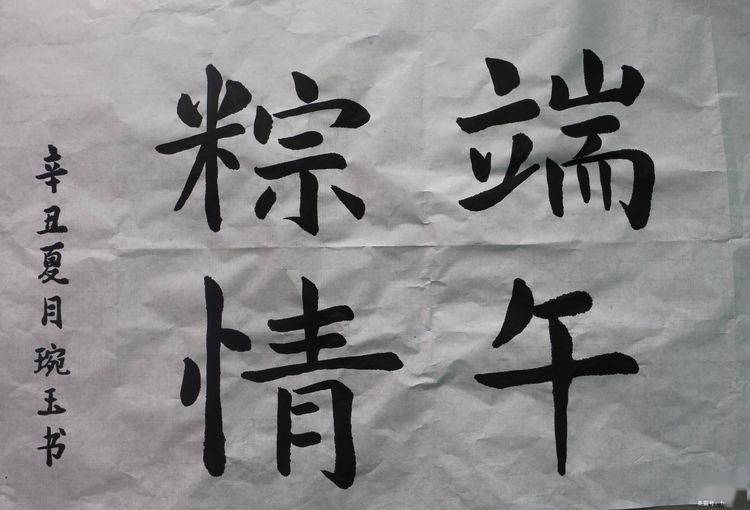 端午
粽情
辛丑夏月琬玉书